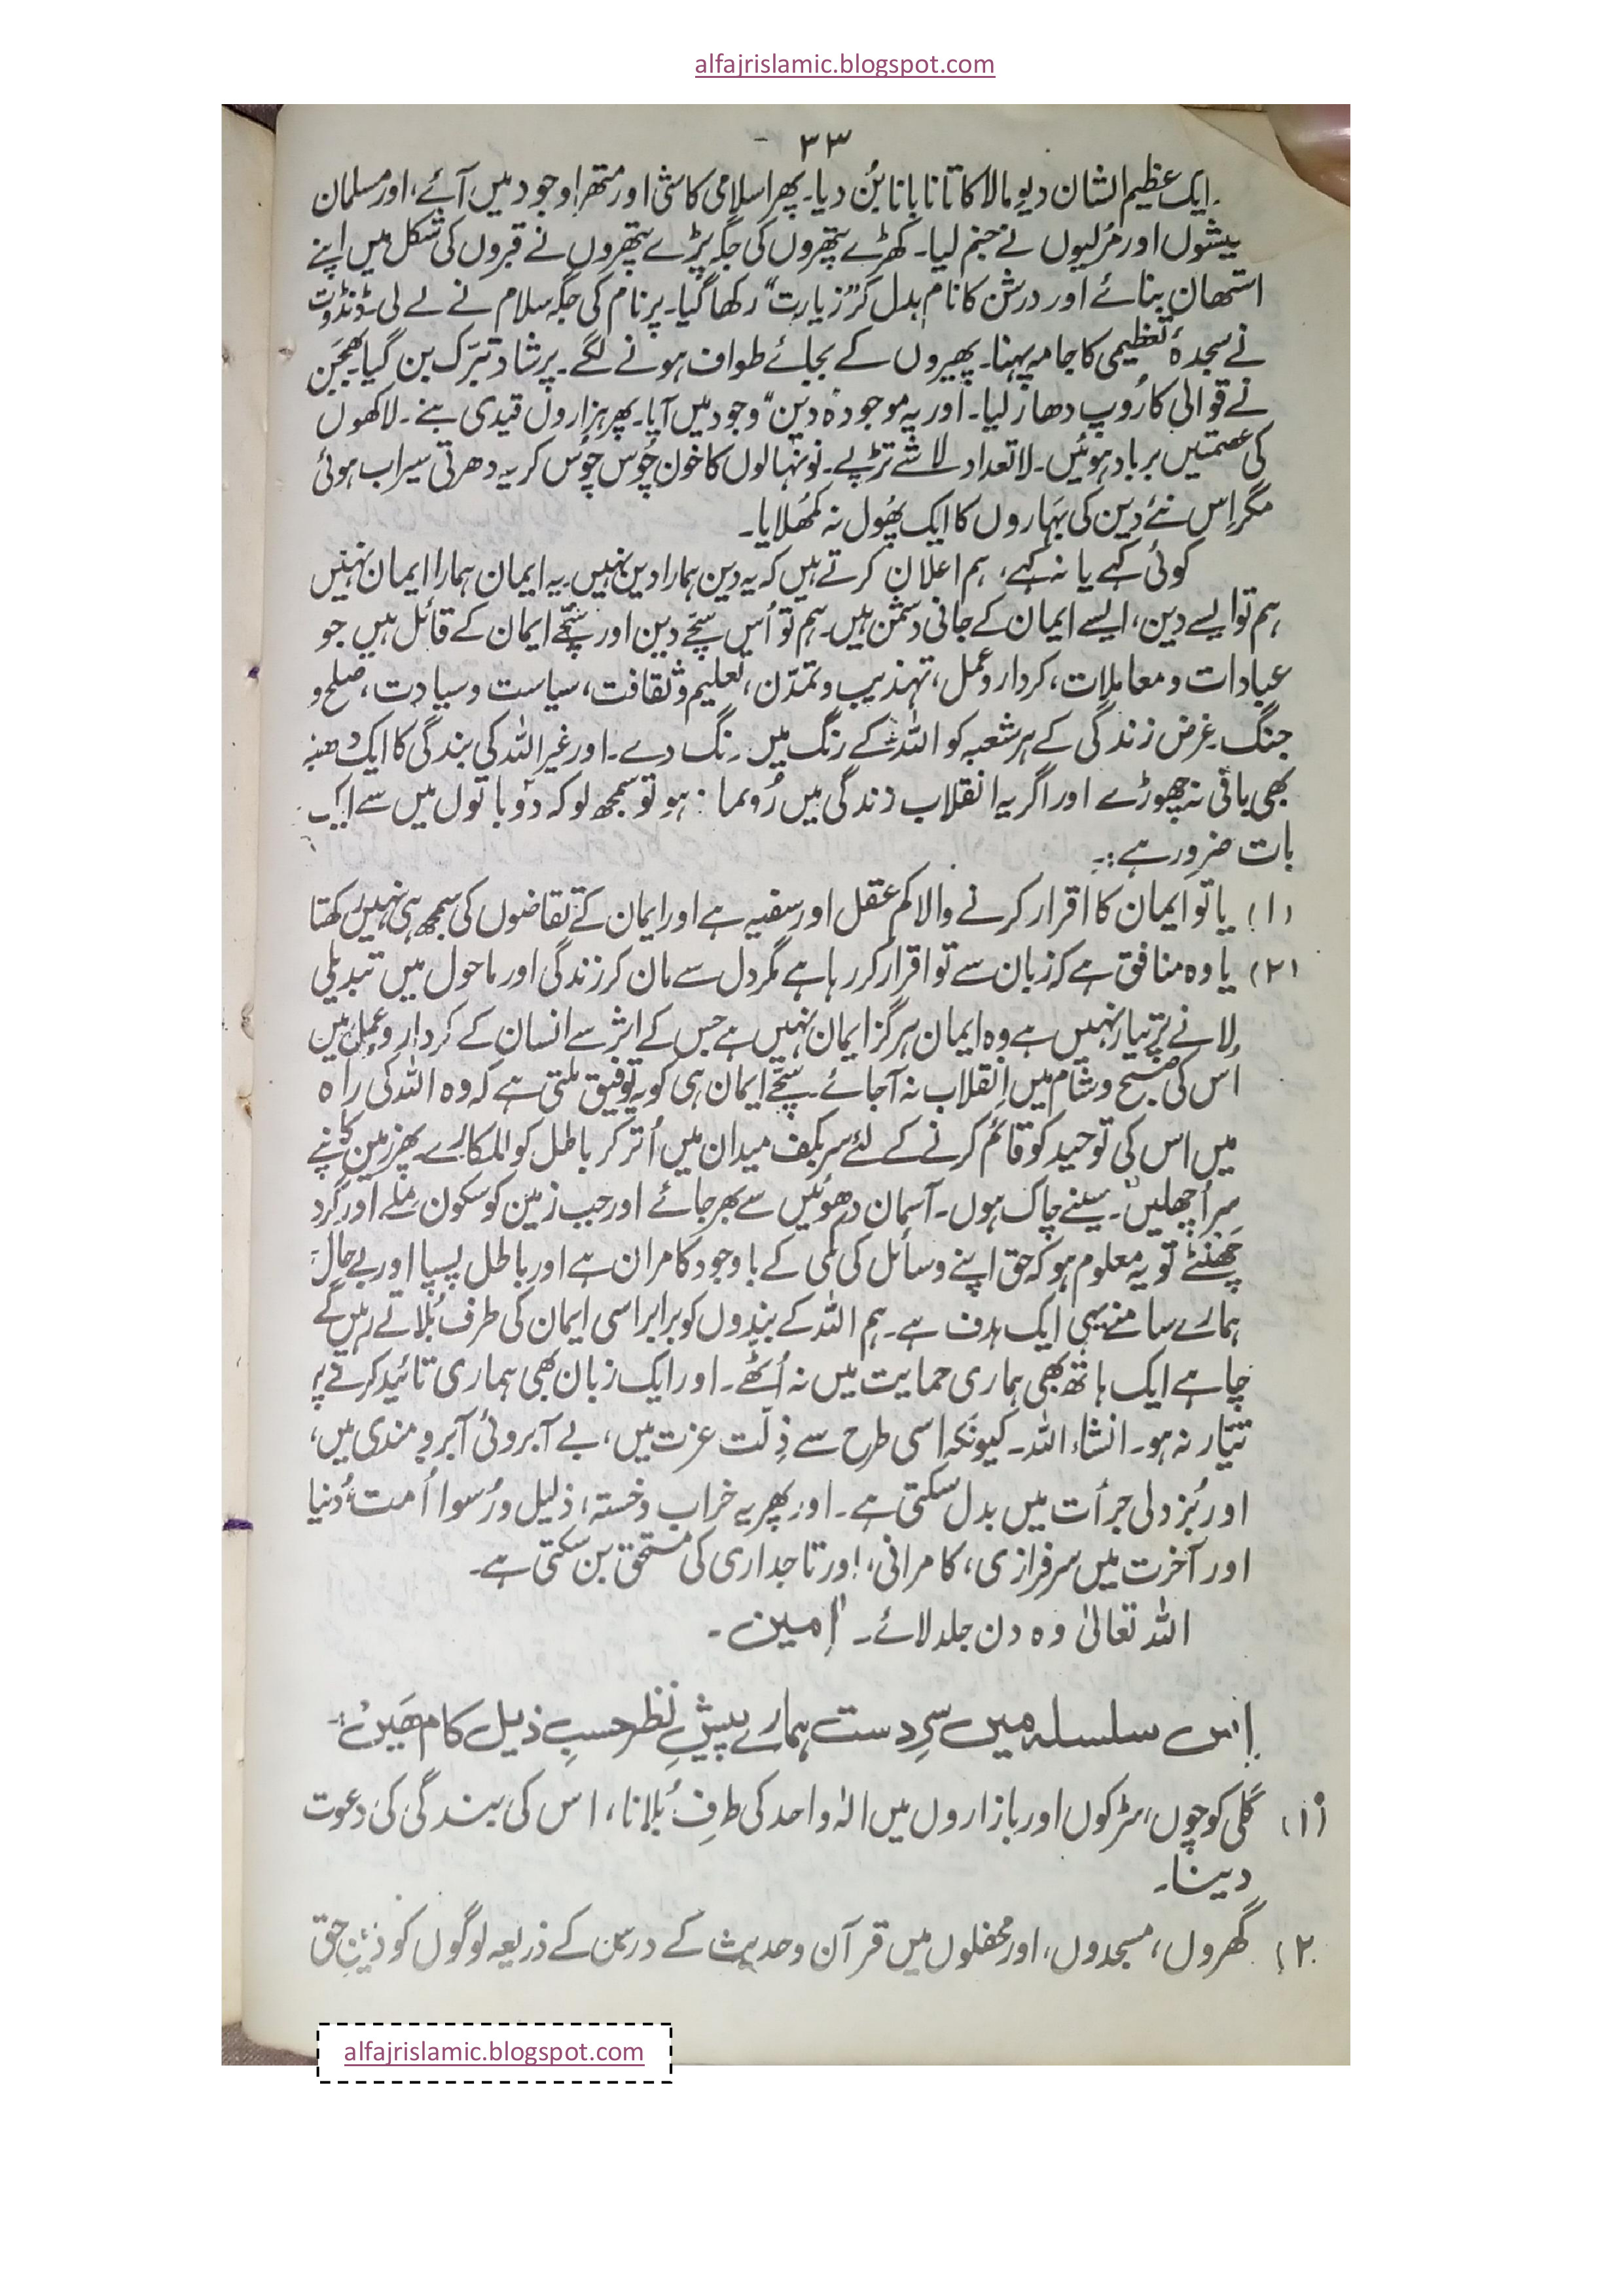 alfajrislamic.blogspot.com
۳۳
ایک عظیم الشان دیومالا کا تانا بانا بُن دیا۔ پھر اسلامی کاشی اور متھرا وجود میں آئے، اور مسلمان
بیشوں اور مُرلیوں نے جنم لیا۔ کھڑے پتھروں کی جگہ پڑے پتھروں نے قبروں کی شکل میں اپنے
استھان بنائے اور درشن کا نام بدل کر ”زیارت“ رکھا گیا۔ پرنام کی جگہ سلام نے لے لی۔ ڈنڈوت
نے سجدۂ تعظیمی کا جامہ پہنا۔ پھیروں کے بجائے طواف ہونے لگے۔ پرشاد تبرّک بن گیا۔ بھجَن
نے قوالی کا رُوپ دھار لیا۔ اور یہ موجودہ ”دین“ وجود میں آیا۔ پھر ہزاروں قیدی بنے۔ لاکھوں
کی عصمتیں برباد ہوئیں۔ لاتعداد لاشے تڑپے۔ نونہالوں کا خون چُوس چُوس کر یہ دھرتی سیراب ہوئی
مگر اِس نئے دین کی بَہاروں کا ایک پھُول نہ کمُھلایا۔
کوئی کہے یا نہ کہے، ہم اعلان کرتے ہیں کہ یہ دین ہمارا دین نہیں۔ یہ ایمان ہمارا ایمان نہیں
ہم تو ایسے دین، ایسے ایمان کے جانی دشمن ہیں۔ ہم تو اُس سچّے دین اور سچّے ایمان کے قائل ہیں جو
عبادات و معاملات، کردار و عمل، تہذیب و تمدّن، تعلیم و ثقافت، سیاست و سیادت، صلح و
جنگ۔ غرض زندگی کے ہر شعبہ کو اللہ کے رنگ میں رنگ دے۔ اور غیر اللہ کی بندگی کا ایک دھبّہ
بھی باقی نہ چھوڑے اور اگر یہ انقلاب زندگی میں رُونما نہ ہو تو سمجھ لو کہ دو باتوں میں سے ایک
بات ضرور ہے:۔
(۱) یا تو ایمان کا اقرار کرنے والا کم عقل اور سفیہ ہے اور ایمان کے تقاضوں کی سمجھ ہی نہیں رکھتا
(۲) یا وہ منافق ہے کہ زبان سے تو اقرار کر رہا ہے مگر دل سے مان کر زندگی اور ماحول میں تبدیلی
لانے پر تیار نہیں ہے وہ ایمان ہرگز ایمان نہیں ہے جس کے اثر سے انسان کے کردار و عمل میں
اُس کی صبح و شام میں اِنقلاب نہ آجائے۔ سچّے ایمان ہی کو یہ توفیق ملتی ہے کہ وہ اللہ کی راہ
میں اس کی توحید کو قائم کرنے کے لئے سر بکف میدان میں اُتر کر باطل کو للکارے۔ پھر زمین کانپے
سر اُچھلیں۔ سینے چاک ہوں۔ آسمان دھوئیں سے بھر جائے اور جب زمین کو سکون ملے اور گرد
چَھنٹے تو یہ معلوم ہو کہ حق اپنے وسائل کی کمی کے باوجود کامران ہے اور باطل پسپا اور بے حال
ہمارے سامنے یہی ایک ہدف ہے۔ ہم اللہ کے بندوں کو برابر اسی ایمان کی طرف بُلاتے رہیں گے
چاہے ایک ہاتھ بھی ہماری حمایت میں نہ اُٹھے۔ اور ایک زبان بھی ہماری تائید کرنے پر
تیّار نہ ہو۔ انشاء اللہ۔ کیونکہ اسی طرح سے ذِلّت عزت میں، بے آبروئی آبرومندی میں،
اور بُزدلی جرأت میں بدل سکتی ہے۔ اور پھر یہ خراب و خستہ، ذلیل و رُسوا اُمت دُنیا
اور آخرت میں سرفرازی، کامرانی، اور تاجداری کی مستحق بن سکتی ہے۔
اللہ تعالیٰ وہ دن جلد لائے۔ اٰمین۔
اِس سلسلہ میں سرِدست ہمارے پیشِ نظر حسبِ ذیل کام ھَیں:۔
(۱) گلی کوچوں، سڑکوں اور بازاروں میں الٰہ واحد کی طرف بُلانا، اس کی بندگی کی دعوت
دینا۔
(۲) گھروں، مسجدوں، اور محفلوں میں قرآن و حدیث کے درس کے ذریعہ لوگوں کو دینِ حق
alfajrislamic.blogspot.com